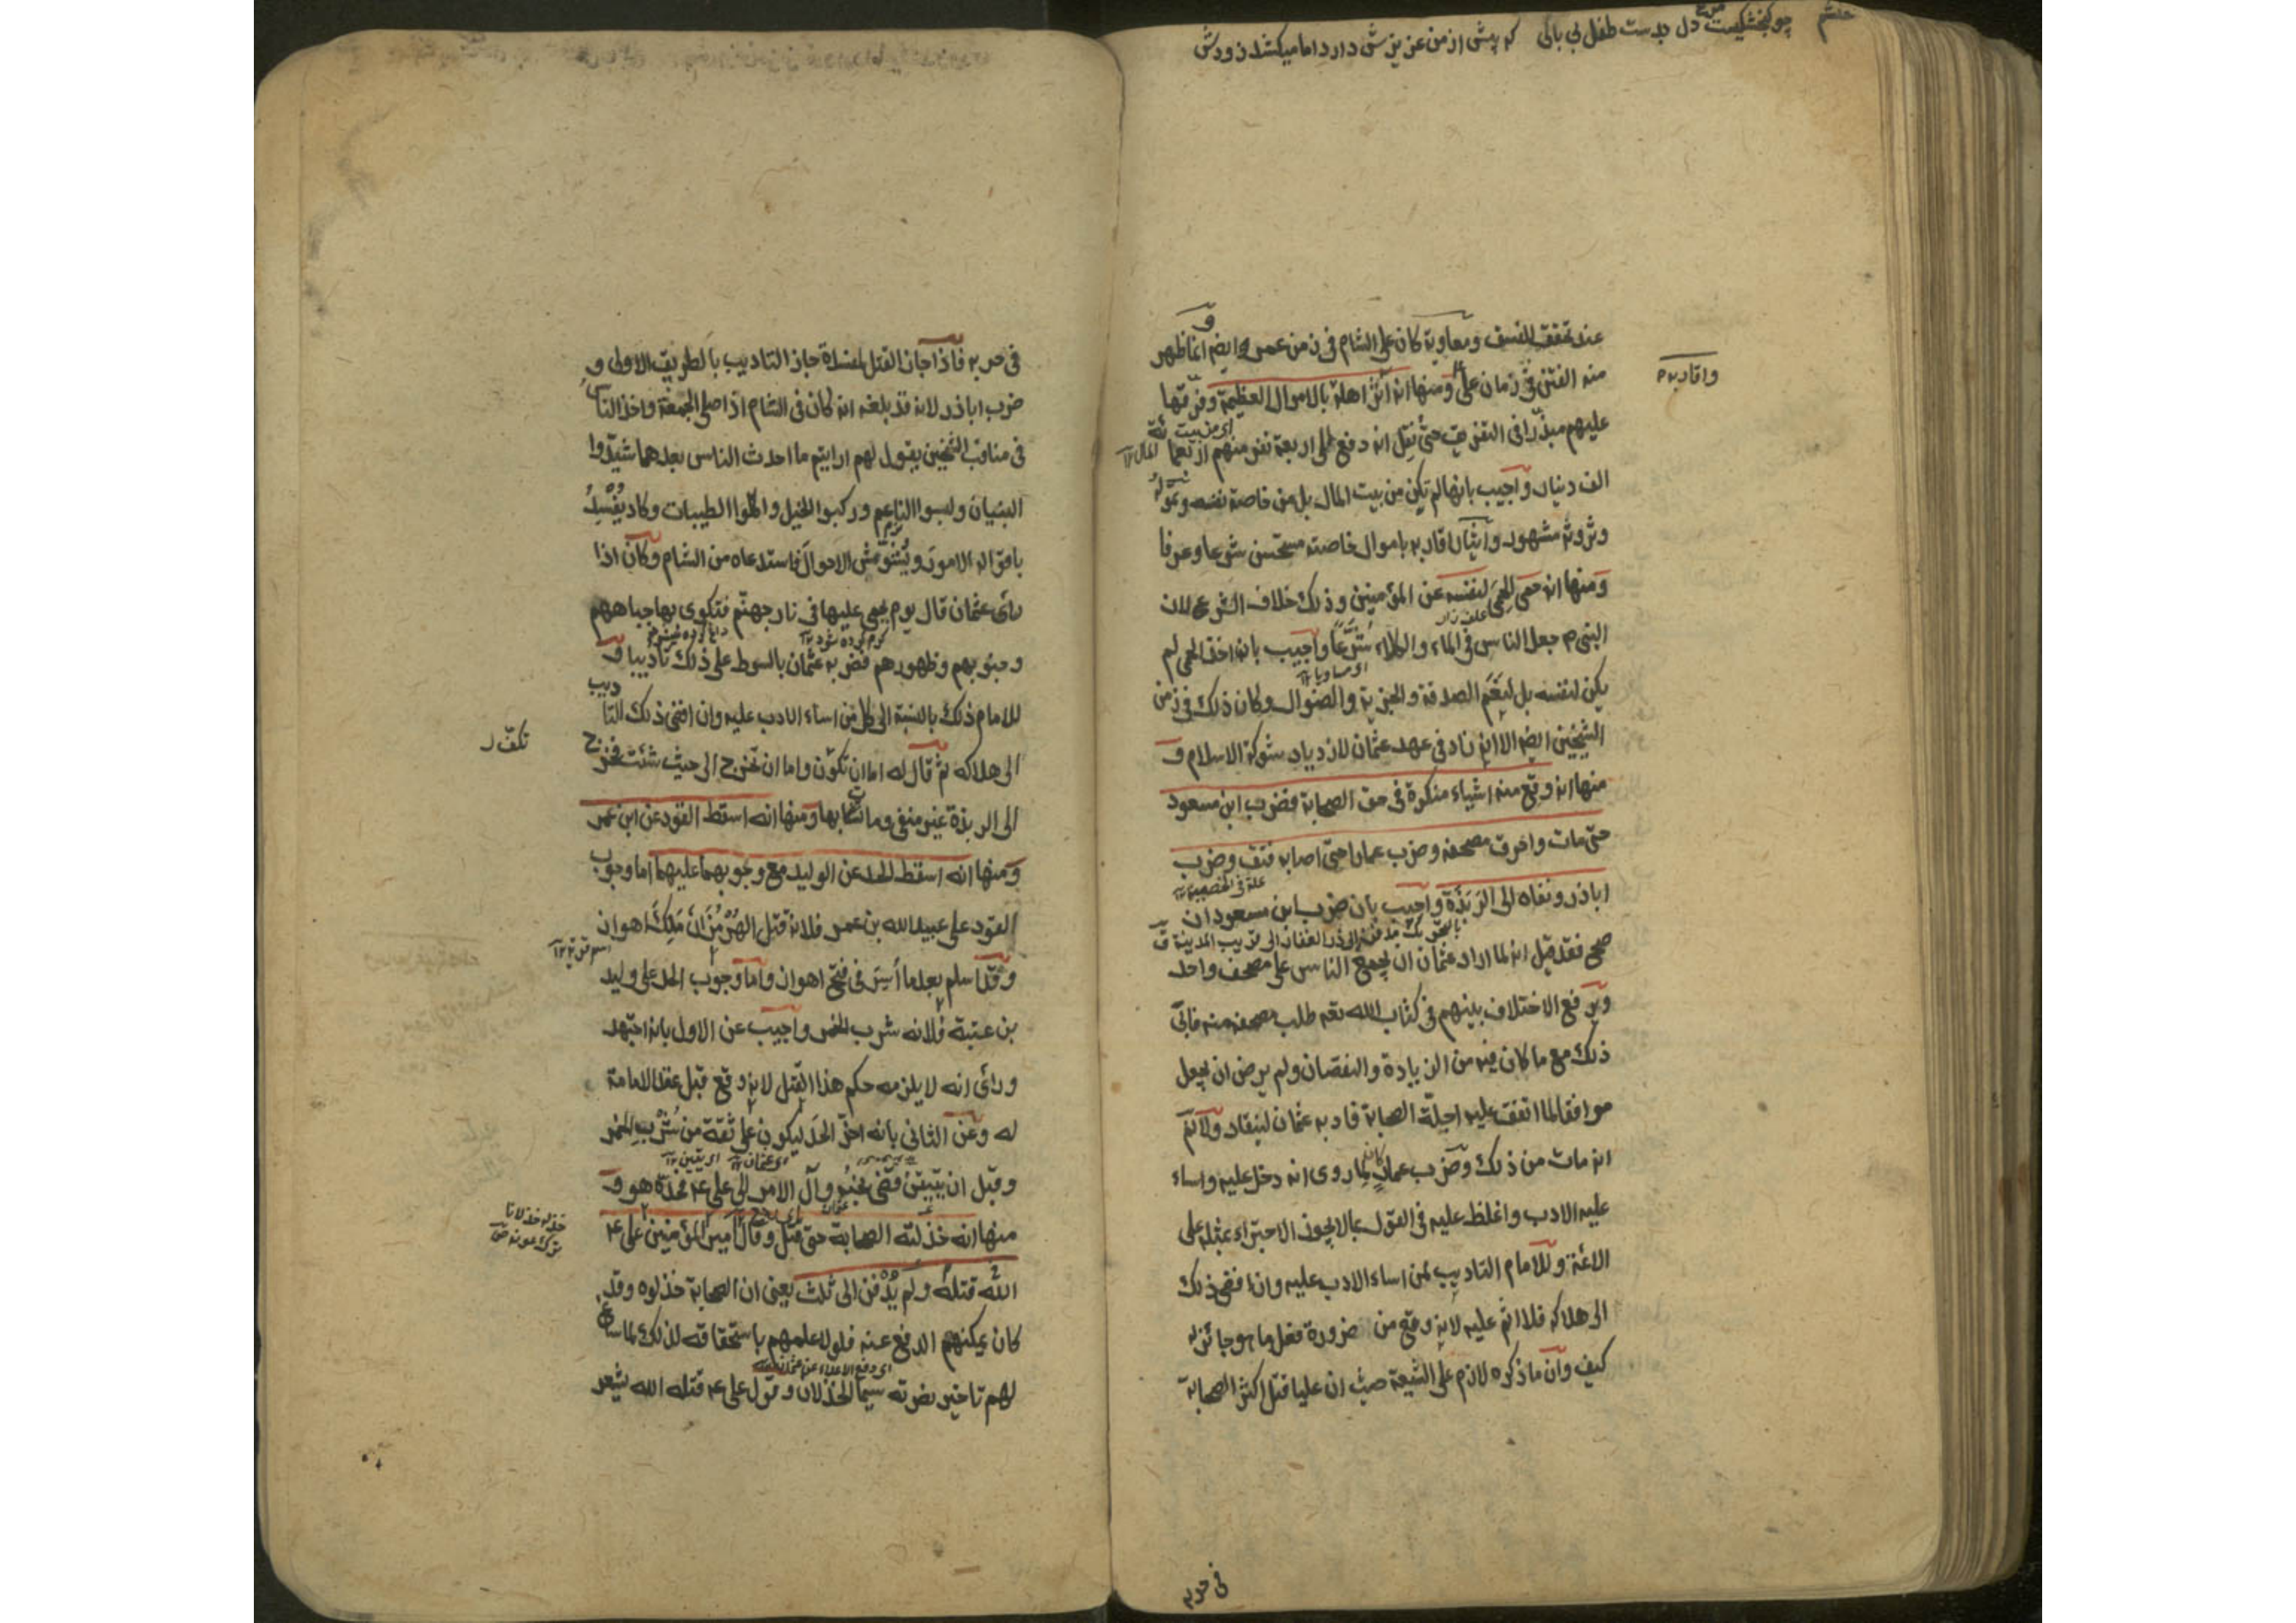 چو کنجشکیست دل بدست طفل بی باکی که پیش از من عزیزش دارد اما میکشد زودش
عند تحقق الفسق ومعاوية كان على الشام فى زمن عمر وايضا انما ظهر
منه الفتن فى زمان على ومنها انه آثر اهله بالاموال العظيمة وفرقها
واقاربه
عليهم مبذرا فى التفريق حتى نقل انه دفع الى اربعة نفر منهم اربعمائة
اى من بيت المال ١٢
الف دينار واجيب بانها لم تكن من بيت المال بل من خاصة نفسه وتموله
وثروته مشهور وايثار اقاربه باموال خاصته مستحسن شرعا وعرفا
ومنها انه حمى الحمى لنفسه عن المؤمنين وذلك خلاف الشرع لان
علف زار
النبى م جعل الناس فى الماء والكلاء شرعا واجيب بان اخذ الحمى لم
اى مساويا ١٢
يكن لنفسه بل لنعم الصدقة والجزية والضوال وكان ذلك فى زمن
الشيخين ايضا الا انه زاد فى عهد عثمان لازدياد شوكة الاسلام و
منها انه وقع منه اشياء منكرة فى حق الصحابة فضرب ابن مسعود
حتى مات واحرق مصحفه وضرب عمارا حتى اصابه فتق وضرب
علة فى الخصيتين ١٢
اباذر ونفاه الى الربذة واجيب بان ضرب ابن مسعود ان
صح فقد قيل انه لما اراد عثمان ان يجمع الناس على مصحف واحد
ويرفع الاختلاف بينهم فى كتاب الله تعه طلب مصحفه منه فابى
ذلك مع ما كان فيه من الزيادة والنقصان ولم يرض ان يجعل
موافقا لما اتفق عليه اجلة الصحابة فادبه عثمان لينقاد ولا نم
انه مات من ذلك وضرب عمار كان لما روى انه دخل عليه واساء
عليه الادب واغلظ عليه فى القول بما لا يجوز الاجتراء بمثله على
الائمة وللامام التاديب لمن اساء الادب عليه وان افضى ذلك
الى هلاكه فلا اثم عليه لانه وقع من ضرورة فعل ما هو جائز له
كيف وان ما ذكره لازم على الشيعة حيث ان عليا قتل اكثر الصحابة
فى حربه
فى حربه فاذا جاز القتل لمفسدة جاز التاديب بالطريق الاولى و
ضرب اباذر لانه قد بلغه انه كان فى الشام اذا صلى الجمعة واخذ الناس
فى مناقب الشيخين يقول لهم ارايتم ما احدث الناس بعدهما شيدوا
البنيان ولبسوا الناعم وركبوا الخيل واكلوا الطيبات وكاد يفسد
باقواله الامور ويشوش الاحوال فاستدعاه من الشام وكان اذا
رأى عثمان قال يوم يحمى عليها فى نار جهنم فتكوى بها جباههم
كرم كرده شود ١٢
وجنوبهم وظهورهم فضربه عثمان بالسوط على ذلك تاديبا و
للامام ذلك بالنسبة الى كل من اساء الادب عليه وان افضى ذلك التاديب
الى هلاكه ثم قال له اما ان تكون واما ان تخرج الى حيث شئت فخرج
تكف ل
الى الربذة غير منفى وما تشابهها ومنها انه اسقط القود عن ابن عمر
ومنها انه اسقط الحد عن الوليد مع وجوبهما عليهما اما وجوب
القود على عبيد الله بن عمر فلانه قتل الهرمزان ملك اهوان
اسم قرية ١٢
وقد اسلم بعد ما أسر فى فتح اهوان واما وجوب الحد على وليد
بن عتبة فلانه شرب الخمر واجيب عن الاول بانه اجتهد
ورأى انه لا يلزمه حكم هذا القتل لانه وقع قبل عقد الامامة
له وعن الثانى بانه اخر الحد ليكون على ثقة من شرب الخمر
اى عثمان ١٢ اى يتيقن ١٢
وقبل ان يتيقن قضى نحبه وآل الامر الى على ع فحده هو و
منها انه خذلته الصحابة حتى قتل وقال امير المؤمنين على ع
الله قتله ولم يدفن الى ثلث يعنى ان الصحابة خذلوه وقد
كان يمكنهم الدفع عنه فلولا علمهم باستحقاقه لذلك لما ساغ
اى دفع الاعداء عن عثمان
لهم تاخير نصرته سيما الخذلان وقول على ع قتله الله يشعر